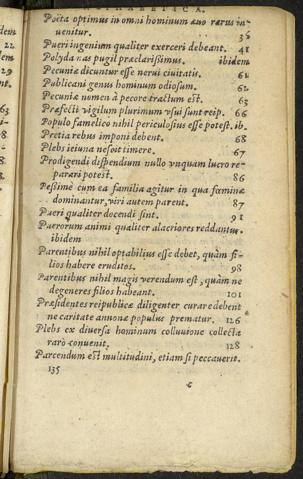 ALPHABETICA.
Poëta optimus in omni hominum æuo rarus in-
uenitur. 36
Pueri ingenium qualiter exerceri debeant. 41
Polydamas pugil præclarissimus. ibidem
Pecuniæ dicuntur esse nerui ciuitatis. 61
Publicani genus hominum odiosum. 62
Pecuniæ nomen à pecore tractum est. 63
Præfecti vigilum plurimum vsui sunt reip. 66
Populo famelico nihil periculosius esse potest. ib.
Pretia rebus imponi debent. 68
Plebs ieiuna nescit timere. 67
Prodigendi dispendium nullo vnquam lucro re-
parari potest. 86
Pessimè cum ea familia agitur in qua fœminæ
dominantur, viri autem parent. 87
Pueri qualiter docendi sint. 91
Puerorum animi qualiter alacriores reddantur.
ibidem
Parentibus nihil optabilius esse debet, quàm fi-
lios habere eruditos. 98
Parentibus nihil magis verendum est, quàm ne
degeneres filios habeant. 101
Præsidentes reipublicæ diligenter curare debent
ne caritate annonæ populus prematur. 126
Plebs ex diuersa hominum colluuione collecta
rarò conuenit. 128
Parcendum est multitudini, etiam si peccauerit.
135
c